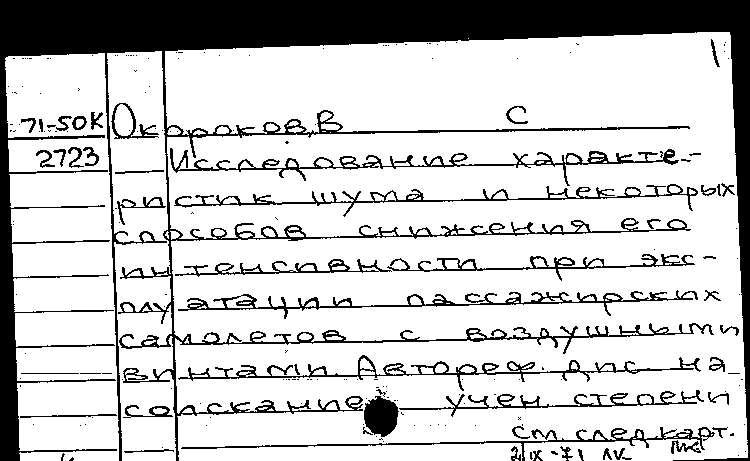 1
71-50K Окороков, В С
2723 Исследование характе-
ристик шума и некоторых
способов снижения его
интенсивности при экс-
плуатации пассажирских
самолетов с воздушными
винтами. Автореф. дис. на
соискание учен. степени
см. след. карт.
2/IX-71 ЛК